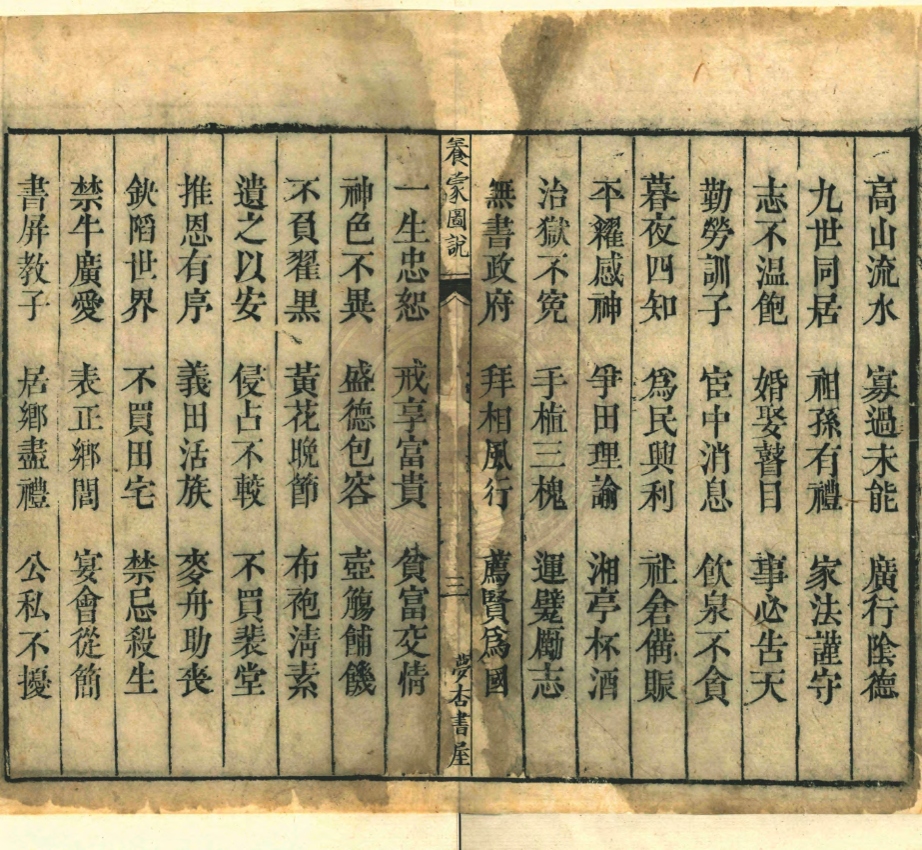 高山流水 寡過未能 廣行陰德
九世同居 祖孫有禮 家法謹守
志不温飽 婚娶瞽目 事必告天
勤勞訓子 宦中消息 飲泉不貪
暮夜四知 爲民興利 社倉備賑
平糴感神 爭田理諭 湘亭杯酒
治獄不寃 手植三槐 運甓勵志
無書政府 拜相風行 薦賢爲國
養蒙圖說 三 夢杏書屋
一生忠恕 戒享富貴 貧富交情
神色不異 盛德包容 壺觴餔饑
不負翟黑 黃花晚節 布袍淸素
遺之以安 侵占不較 不買裴堂
推恩有序 義田活族 麥舟助喪
缺陷世界 不買田宅 禁忌殺生
禁牛廣愛 表正鄉閭 宴會從簡
書屏教子 居鄉盡禮 公私不擾